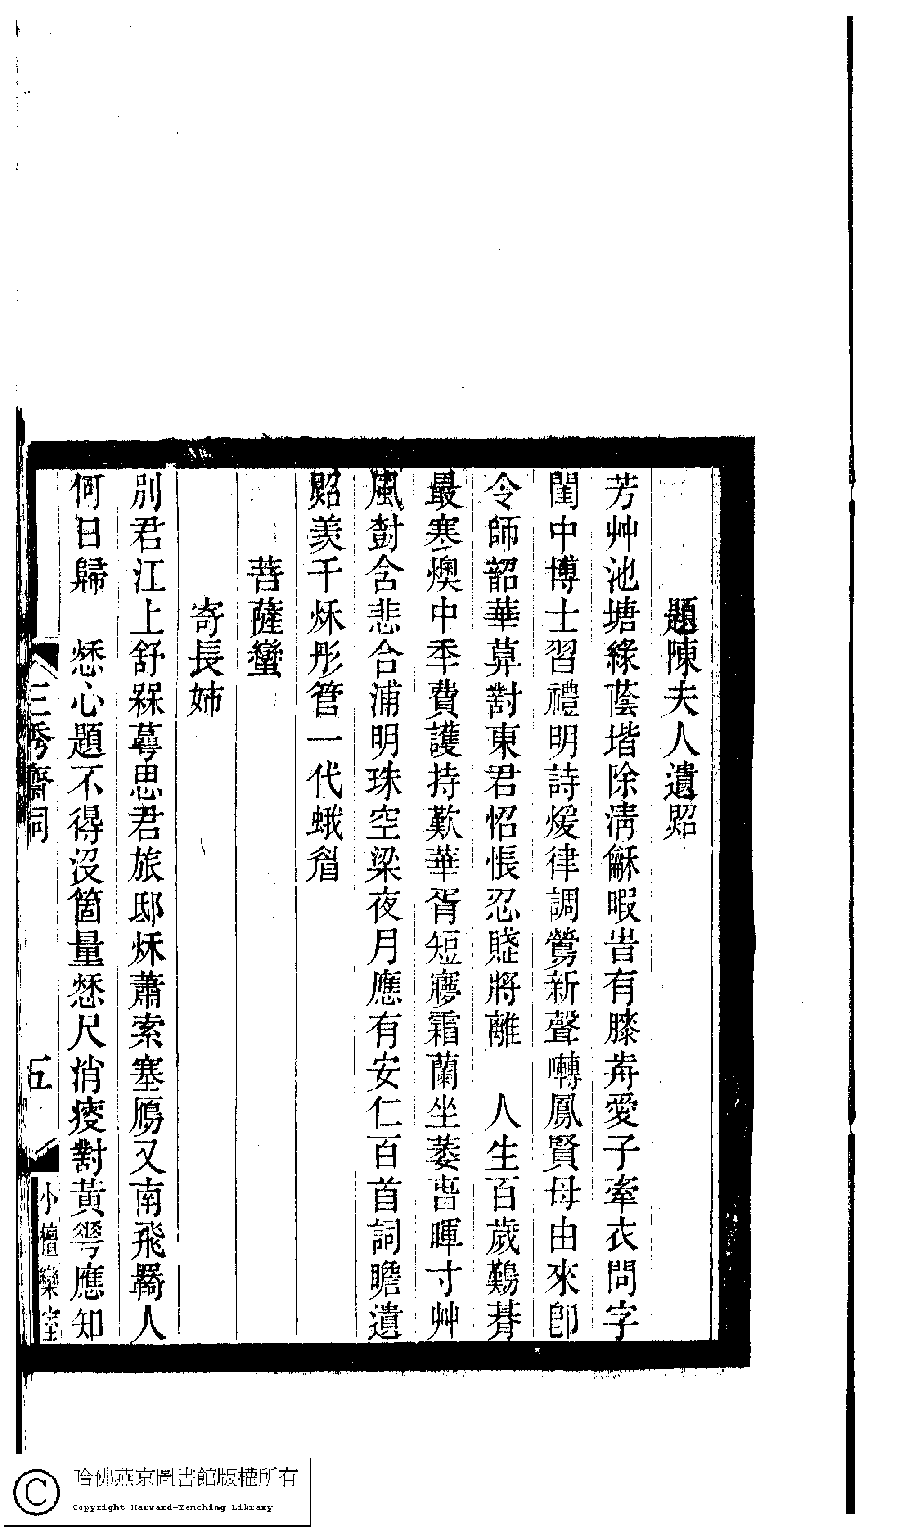 題陳夫人遺照
芳艸池塘綠蔭堦除淸龢暇旹有膝歬愛子牽衣問字
閨中博士習禮明詩煖律調鶯新聲囀鳳賢母由來卽
令師韶華莫對東君怊悵忍賤將離　人生百歲難朞
最寒燠中年費護持歎華胥短寢霜蘭坐萎旾暉寸艸
風對含悲合浦明珠空梁夜月應有安仁百首詞瞻遺
照羨千秌彤管一代蛾眉
菩薩蠻
寄長姊
別君江上舒槑萼思君旅邸秌蕭索塞鴈又南飛羈人
何日歸　愁心題不得沒箇量愁尺消瘦對黃雩應知
三秀齋詞
五
小檀欒室
哈佛燕京圖書館版權所有
Copyright Harvard-Yenching Library